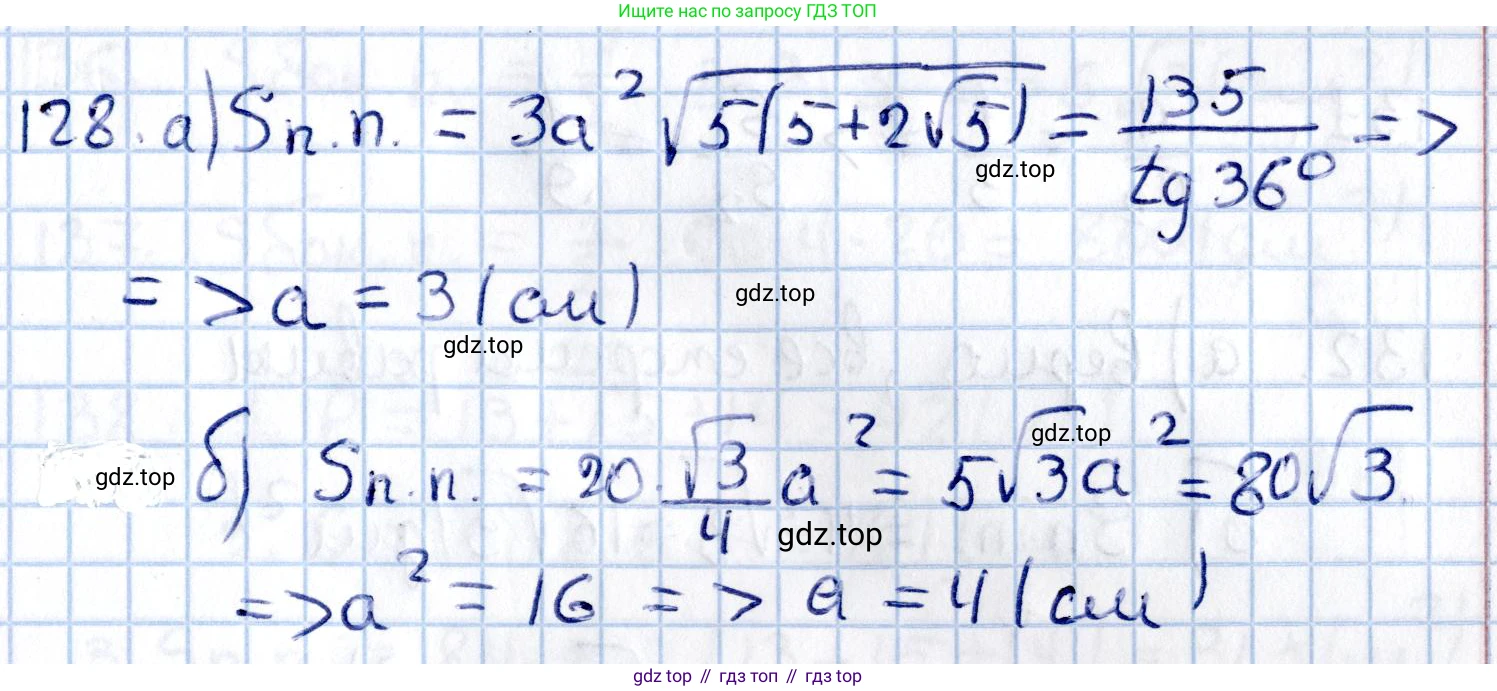 Ищите нас по запросу ГДЗ ТОП
128. а) Sп.п. = 3a² √(5(5+2√5)) = 135/tg 36° =>
gdz.top
=> a = 3 (см)
gdz.top
gdz.top
gdz.top
б) Sп.п. = 20 · √3/4 a² = 5√3a² = 80√3
gdz.top
gdz.top
=> a² = 16 => a = 4 (см)
gdz.top // гдз топ // гдз top